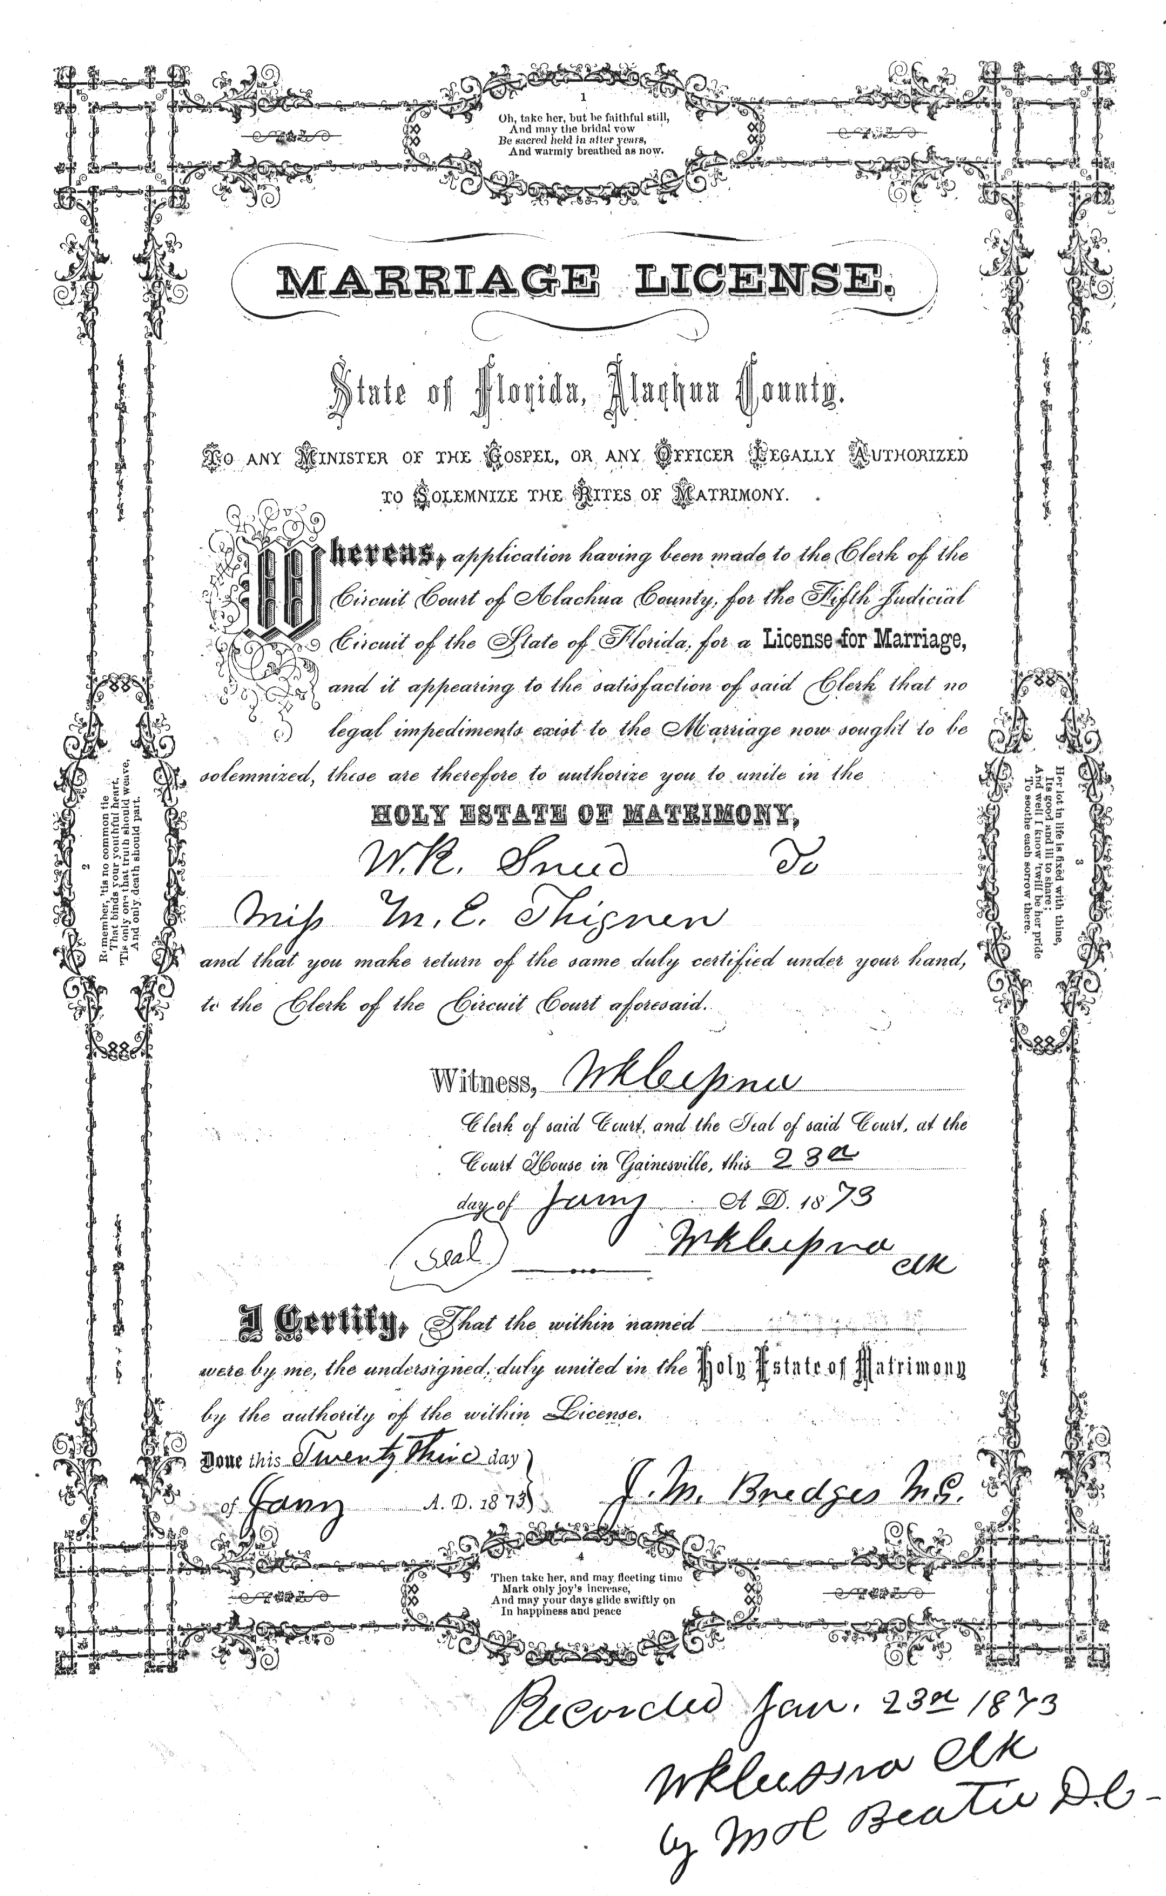 1
Oh, take her, but be faithful still,
And may the bridal vow
Be sacred held in after years,
And warmly breathed as now.
MARRIAGE LICENSE.
State of Florida, Alachua County.
TO ANY MINISTER OF THE GOSPEL, OR ANY OFFICER LEGALLY AUTHORIZED
TO SOLEMNIZE THE RITES OF MATRIMONY.
Whereas, application having been made to the Clerk of the
Circuit Court of Alachua County, for the Fifth Judicial
Circuit of the State of Florida, for a License for Marriage,
and it appearing to the satisfaction of said Clerk that no
legal impediments exist to the Marriage now sought to be
solemnized, these are therefore to authorize you to unite in the
HOLY ESTATE OF MATRIMONY,
W.R. Sneed To
Miss M. E. Thignen
and that you make return of the same duly certified under your hand,
to the Clerk of the Circuit Court aforesaid.
Witness,
Clerk of said Court, and the Seal of said Court, at the
Court House in Gainesville, this 23d
day of Jany A.D. 1873
Seal
Clk
I Certify, That the within named
were by me, the undersigned, duly united in the Holy Estate of Matrimony
by the authority of the within License.
Done this Twenty Third day
of Jany A.D. 1873
J. M. Bridges M.G.
2
Remember, 'tis no common tie
That binds your youthful heart,
'Tis only one that truth should weave,
And only death should part.
3
Her lot in life is fixed with thine,
Its good and ill to share;
And well I know 'twill be her pride
To soothe each sorrow there.
4
Then take her, and may fleeting time
Mark only joy's increase,
And may your days glide swiftly on
In happiness and peace
Recorded Jan. 23d 1873
Clk
by Beatie D.C.